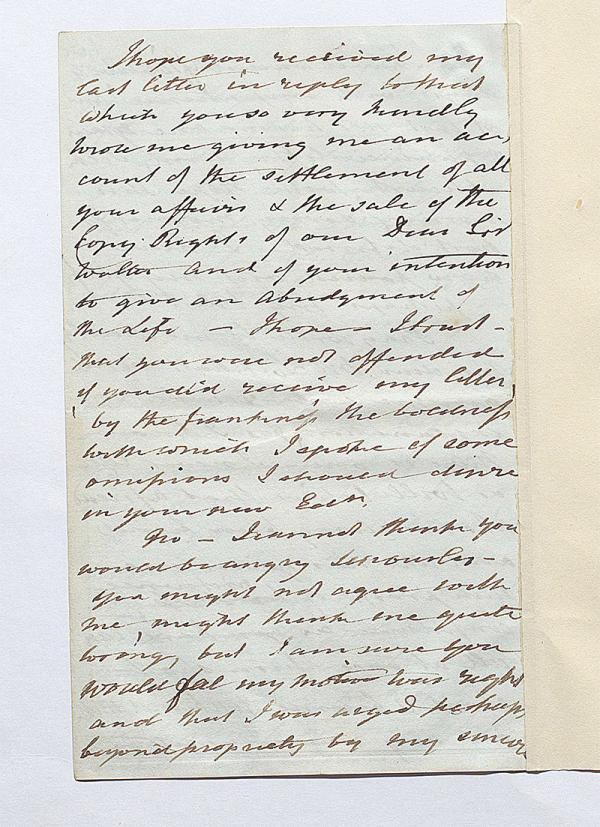 I hope you received my
last letter in reply to that
which you so very kindly
wrote me giving me an ac,
count of the settlement of all
your affairs & the sale of the
Copy Rights of our Dear Sir
Walter and of your intention
to give an abridgment of
the Life – I hope – I trust –
that you were not offended
if you did receive my letter
by the frankness, the boldness
with which I spoke of some
omissions I should desire
in your new Edtn.
No – I cannot think you
would be angry seriously –
you might not agree with
me, might think me quite
wrong, but I am sure you
would feel my motive was right
and that I was urged perhaps
beyond propriety by my sincere